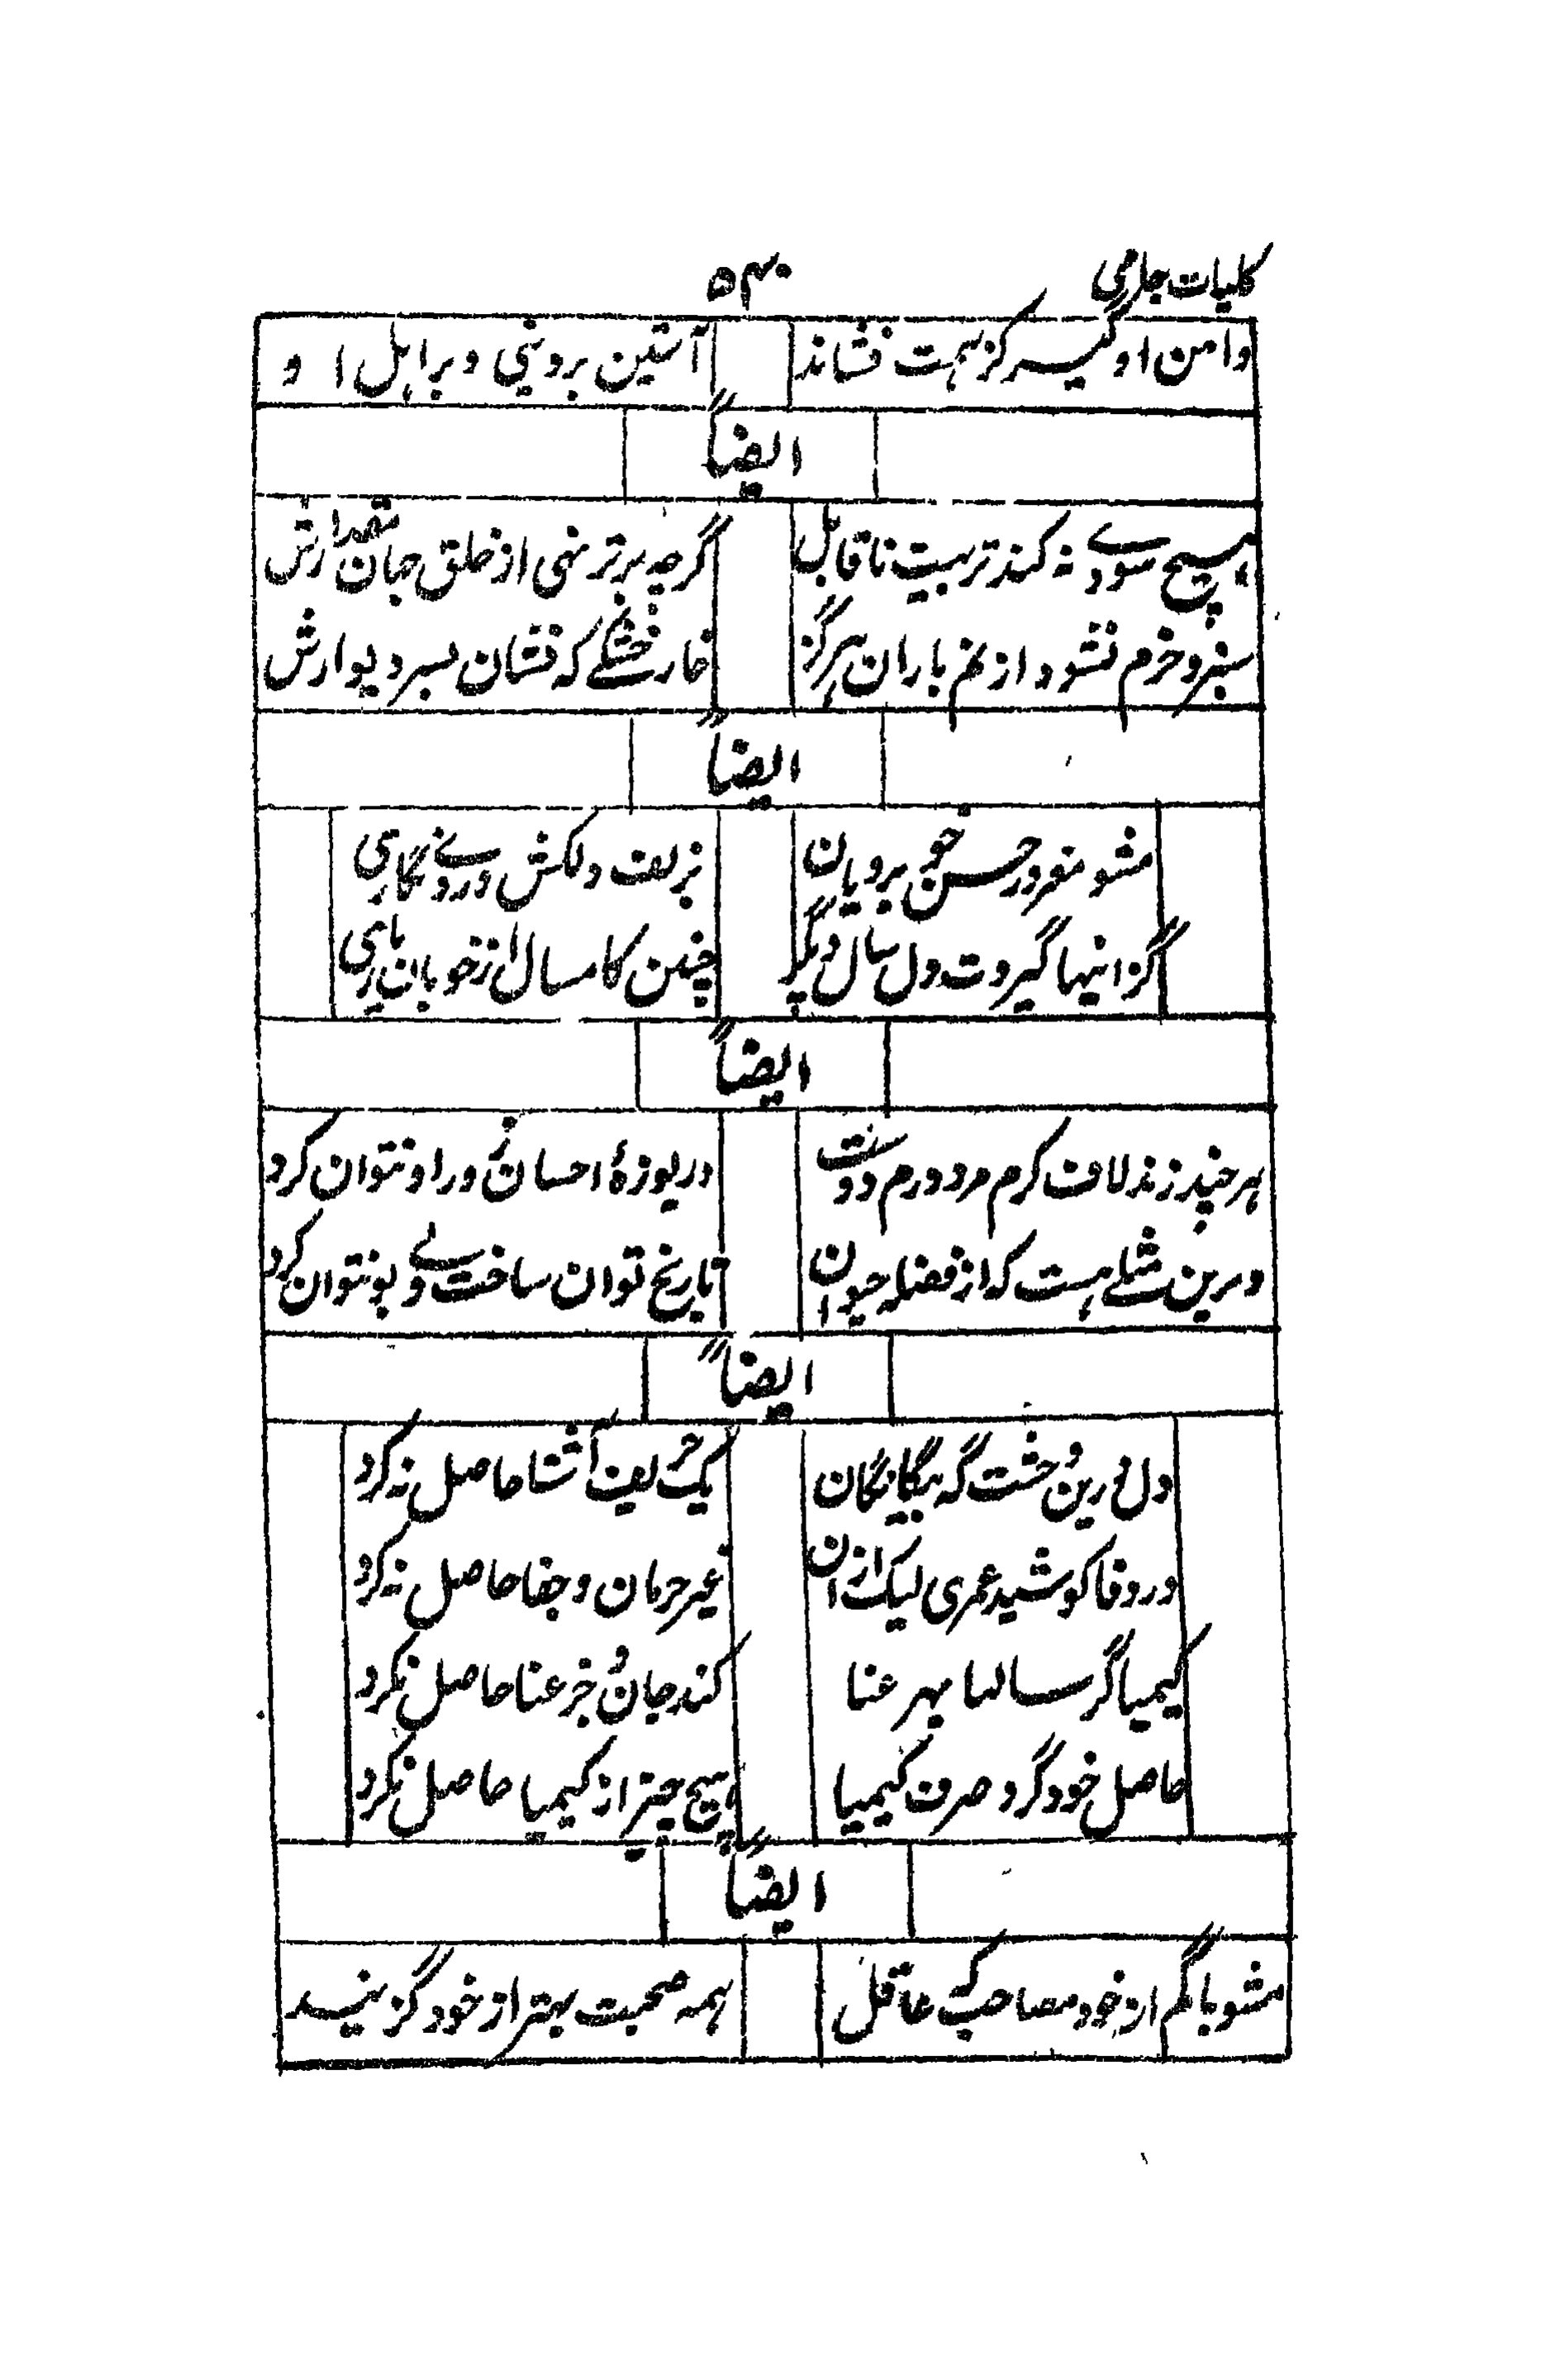 کلیات جامی
۵۴۰
دامن او گیر کز همت فشاند
آستین بر دنیی و بر اهل او
ایضاً
هیچ سودے نه کند تربیت ناقابل
گرچه برتر نهی از خلق جهان مقدارش
سبز و خرم نشود از نم باران هرگز
خار خشکے که نشان بسر دیوارش
ایضاً
مشو مغرور حسن خوبرویان
بزلف دلکش و روے نگاری
گز اینها گیردت دل سال دیگر
چنین کامسال از خوبان پاری
ایضاً
هر چند زند لاف کرم مرد درم دوست
دریوزۂ احسان ز در او نتوان کرد
دیرین مثلے هست که از فضله حیوان
نارنج توان ساخت ولے بو نتوان کرد
ایضاً
دل درین وحشت گه بیگانگان
یک حریف آشنا حاصل نه کرد
در وفا کوشید عمری لیک ازان
غیر حرمان و جفا حاصل نه کرد
کیمیاگر سالها بهر غنا
کند جان و جز عنا حاصل نکرد
حاصل خود کرد صرف کیمیا
هیچ چیز از کیمیا حاصل نکرد
ایضاً
مشو با کم از خود مصاحب که عاقل
همه صحبت بهتر از خود گزیند